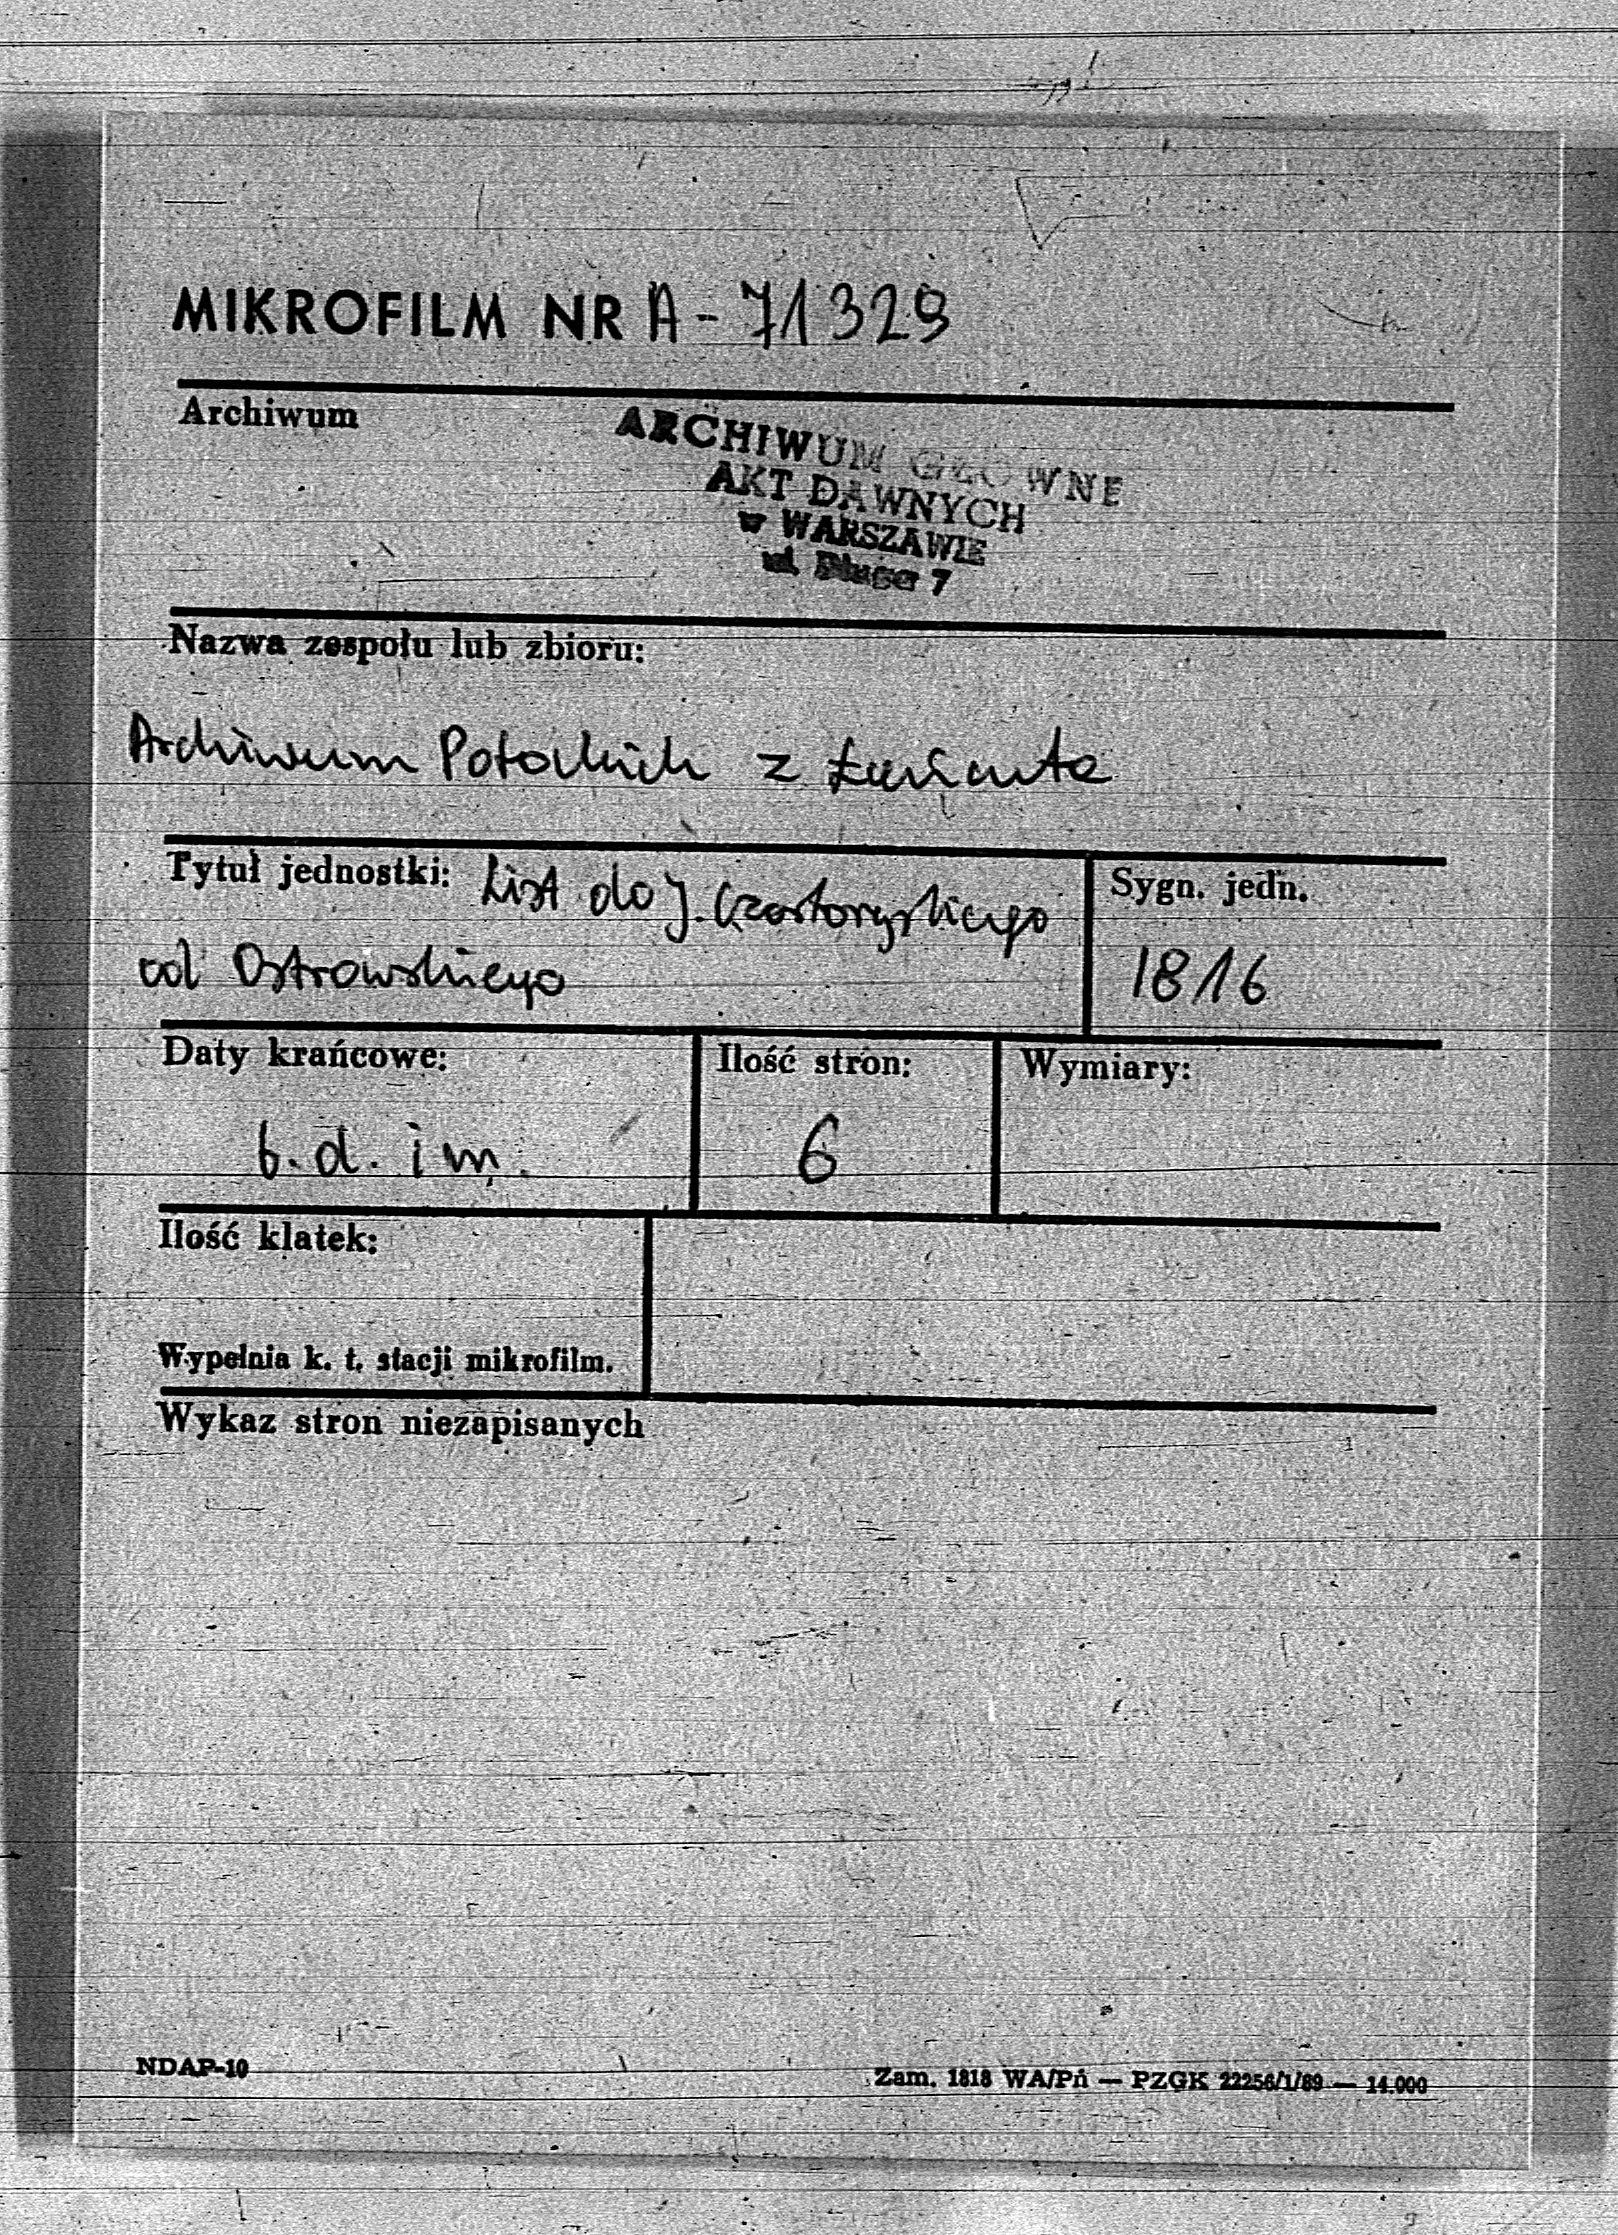 MIKROFILM NR A-71329
Archiwum
ARCHIWUM GŁÓWNE
AKT DAWNYCH
w WARSZAWIE
ul. Długa 7
Nazwa zespołu lub zbioru:
Archiwum Potockich z Łańcuta
Tytuł jednostki: List do J. Czartoryskiego
od Ostrowskiego
Sygn. jedn.
1816
Daty krańcowe:
b.d. i m.
Ilość stron:
6
Wymiary:
Ilość klatek:
Wypełnia k. t. stacji mikrofilm.
Wykaz stron niezapisanych
NDAP-10
Zam. 1818 WA/Pń — PZGK 22256/1/89 — 14.000